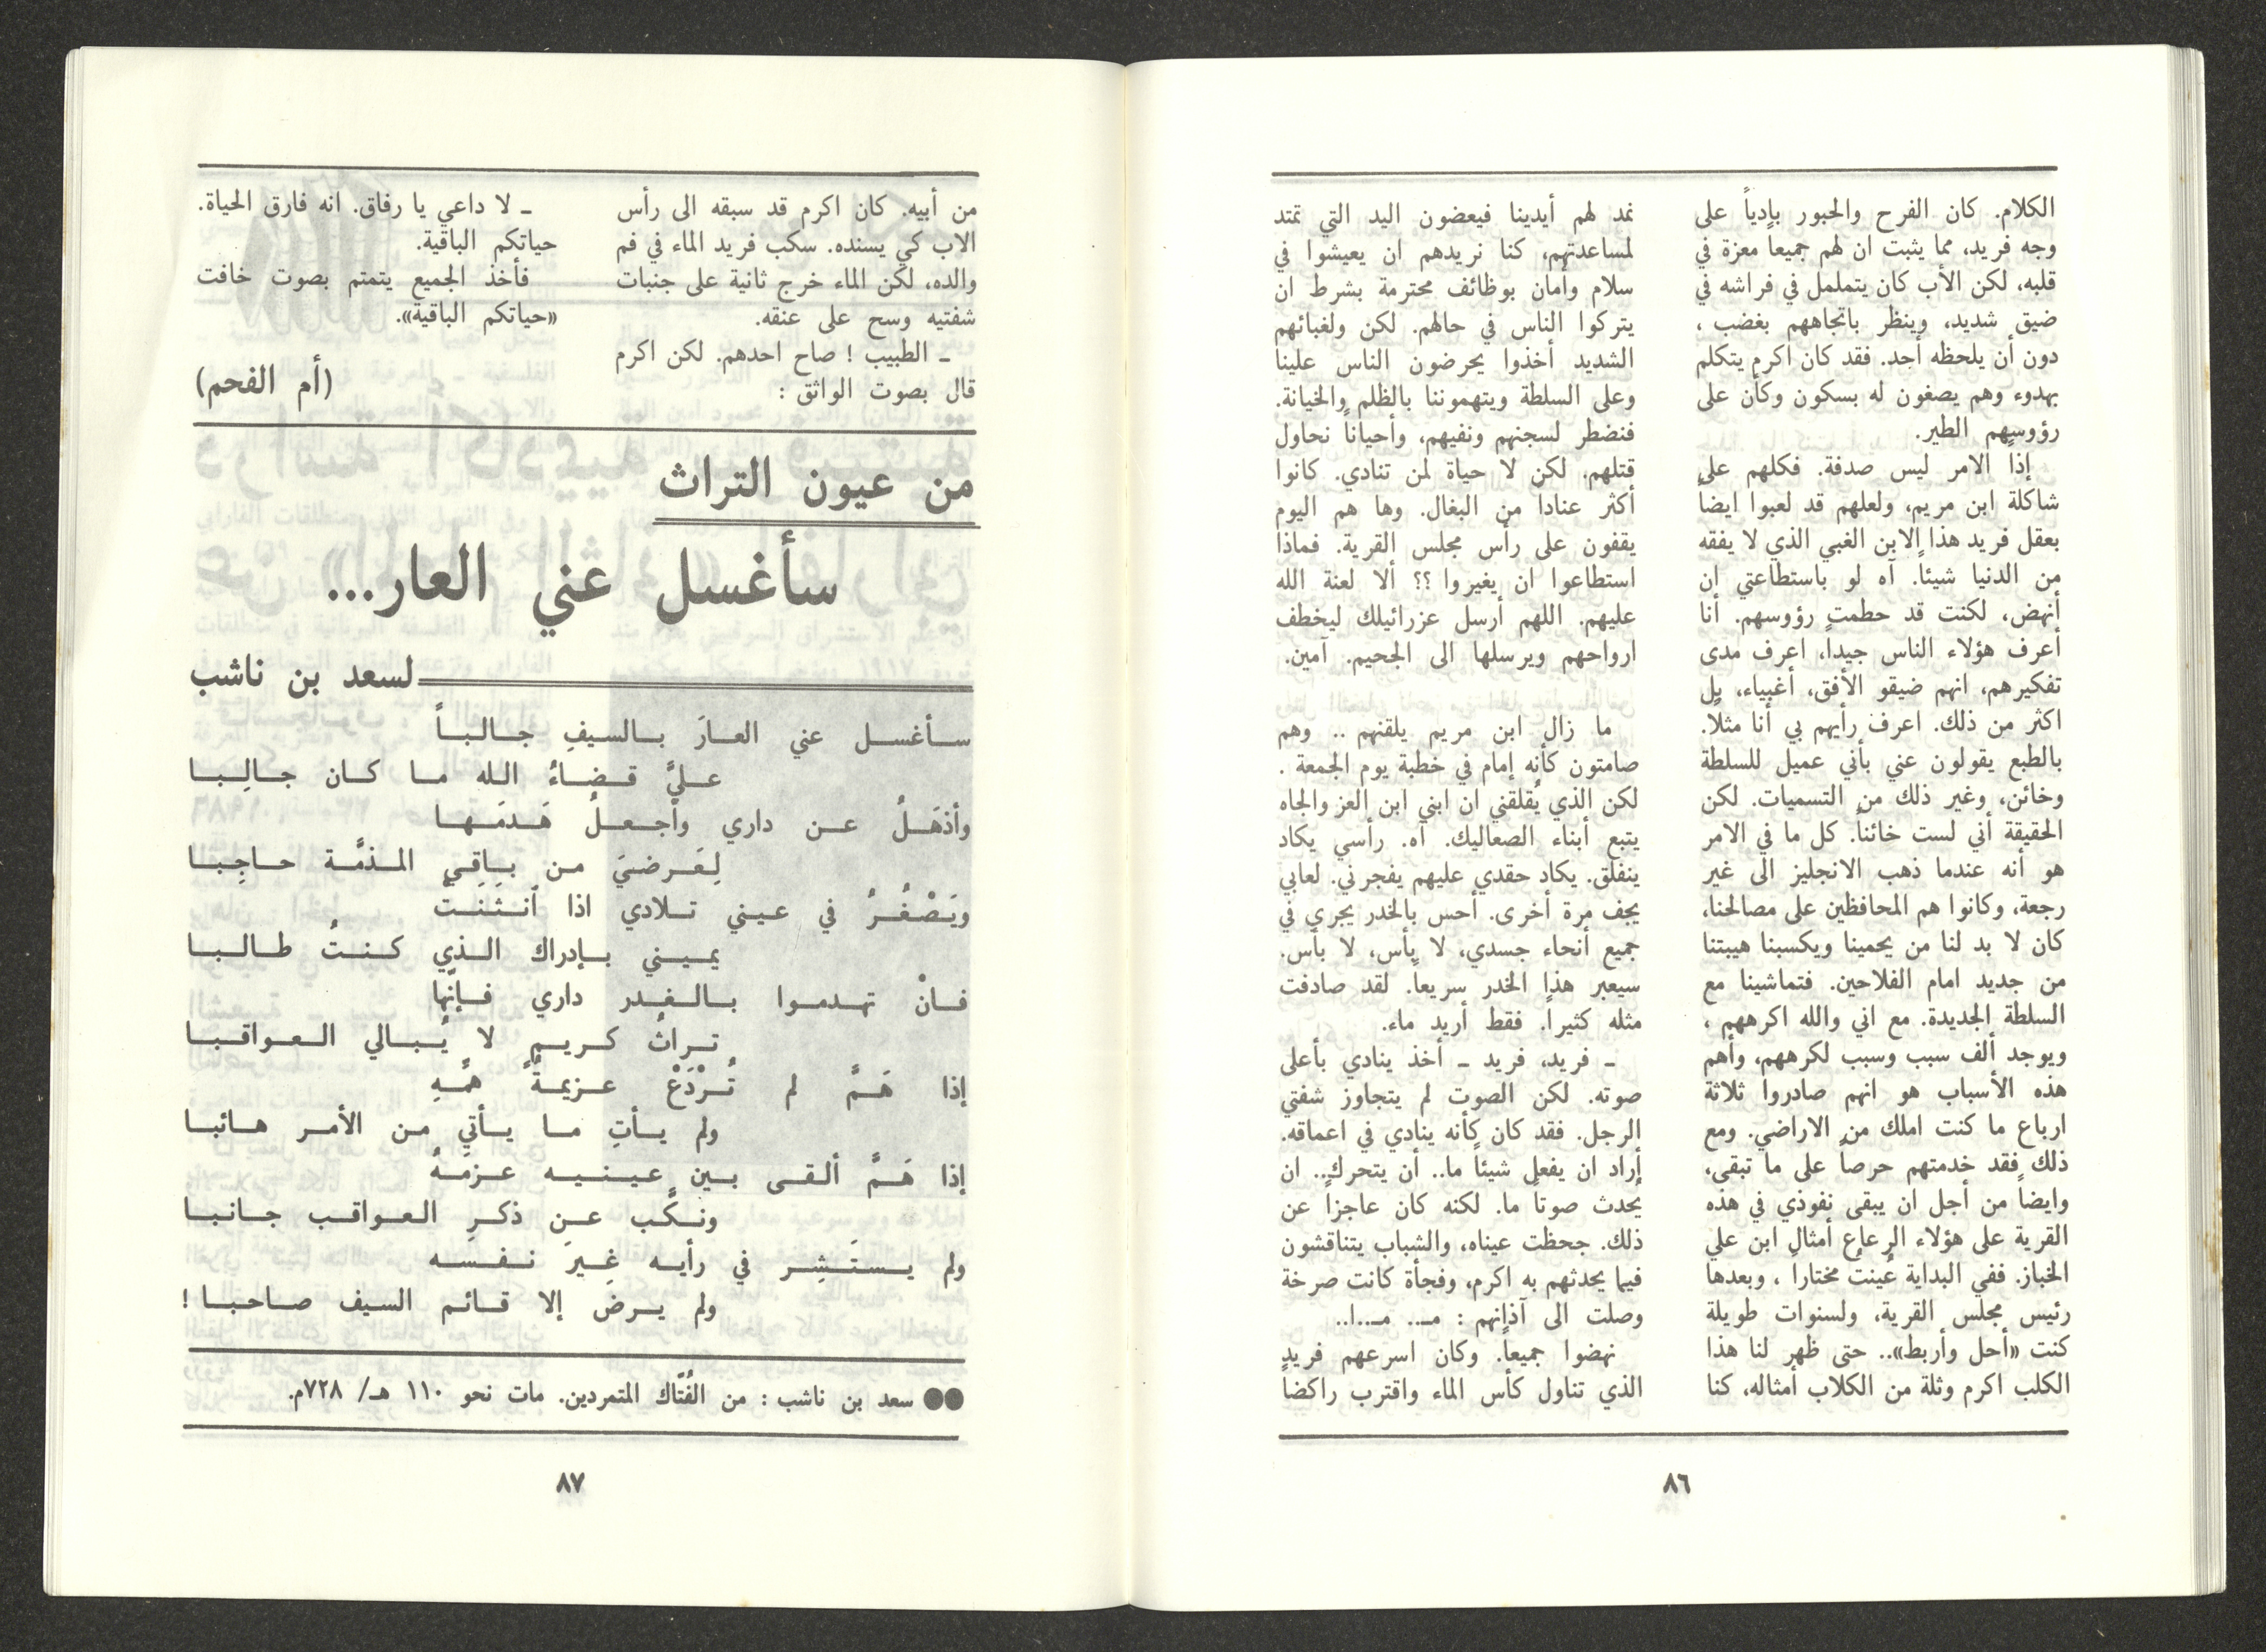 الكلام. كان الفرح والحبور بادياً على
وجه فريد، مما يثبت ان لهم جميعاً معزة في
قلبه، لكن الأب كان يتململ في فراشه في
ضيق شديد، وينظر باتجاههم بغضب ،
دون أن يلحظه أحد. فقد كان اكرم يتكلم
بهدوء وهم يصغون له بسكون وكأن على
رؤوسهم الطير.
إذاً الامر ليس صدفة. فكلهم على
شاكلة ابن مريم، ولعلهم قد لعبوا ايضاً
بعقل فريد هذا الابن الغبي الذي لا يفقه
من الدنيا شيئاً. آه لو باستطاعتي ان
أنهض، لكنت قد حطمت رؤوسهم. أنا
أعرف هؤلاء الناس جيداً، اعرف مدى
تفكيرهم، انهم ضيقو الأفق، أغبياء، بل
اكثر من ذلك. اعرف رأيهم بي أنا مثلاً.
بالطبع يقولون عني بأني عميل للسلطة
وخائن، وغير ذلك من التسميات. لكن
الحقيقة أني لست خائناً. كل ما في الامر
هو أنه عندما ذهب الانجليز الى غير
رجعة، وكانوا هم المحافظين على مصالحنا،
كان لا بد لنا من يحمينا ويكسبنا هيبتنا
من جديد امام الفلاحين. فتماشينا مع
السلطة الجديدة. مع اني والله اكرههم ،
ويوجد ألف سبب وسبب لكرههم، وأهم
هذه الأسباب هو انهم صادروا ثلاثة
ارباع ما كنت املك من الاراضي. ومع
ذلك فقد خدمتهم حرصاً على ما تبقى،
وايضاً من أجل ان يبقى نفوذي في هذه
القرية على هؤلاء الرعاع أمثال ابن علي
الخباز. ففي البداية عُينتُ مختاراً ، وبعدها
رئيس مجلس القرية، ولسنوات طويلة
كنت «أحل وأربط».. حتى ظهر لنا هذا
الكلب اكرم وثلة من الكلاب أمثاله، كنا
نمد لهم أيدينا فيعضون اليد التي تمتد
لمساعدتهم، كنا نريدهم ان يعيشوا في
سلام وأمان بوظائف محترمة بشرط ان
يتركوا الناس في حالهم. لكن ولغبائهم
الشديد أخذوا يحرضون الناس علينا
وعلى السلطة ويتهموننا بالظلم والخيانة.
فنضطر لسجنهم ونفيهم، وأحياناً نحاول
قتلهم. لكن لا حياة لمن تنادي. كانوا
أكثر عنادا من البغال. وها هم اليوم
يقفون على رأس مجلس القرية. فماذا
استطاعوا ان يغيروا ؟؟ ألا لعنة الله
عليهم. اللهم أرسل عزرائيلك ليخطف
ارواحهم ويرسلها الى الجحيم. آمين.
ما زال ابن مريم يلقنهم .. وهم
صامتون كأنه إمام في خطبة يوم الجمعة .
لكن الذي يُقلقني ان ابني ابن العز والجاه
يتبع أبناء الصعاليك. آه. رأسي يكاد
ينفلق. يكاد حقدي عليهم يفجرني. لعابي
يجف مرة أخرى. أحس بالخدر يجري في
جميع أنحاء جسدي، لا بأس، لا بأس.
سيعبر هذا الخدر سريعاً. لقد صادفت
مثله كثيراً. فقط أريد ماء.
ـ فريد، فريد ـ أخذ ينادي بأعلى
صوته. لكن الصوت لم يتجاوز شفتي
الرجل. فقد كان كأنه ينادي في اعماقه.
أراد ان يفعل شيئاً ما.. أن يتحرك.. ان
يُحدث صوتاً ما. لكنه كان عاجزاً عن
ذلك. جحظت عيناه، والشباب يتناقشون
فيما يحدثهم به اكرم، وفجأة كانت صرخة
وصلت الى آذانهم : مـ.. مـ..ا..
نهضوا جميعاً. وكان اسرعهم فريد
الذي تناول كأس الماء واقترب راكضاً
٨٦
من أبيه. كان اكرم قد سبقه الى رأس
الاب كي يسنده. سكب فريد الماء في فم
والده، لكن الماء خرج ثانية على جنبات
شفتيه وسح على عنقه.
ـ الطبيب ! صاح احدهم. لكن اكرم
قال بصوت الواثق :
ـ لا داعي يا رفاق. انه فارق الحياة.
حياتكم الباقية.
فأخذ الجميع يتمتم بصوت خافت
«حياتكم الباقية».
(أم الفحم)
من عيون التراث
سأغسل عني العار...
لسعد بن ناشب
سأغسل عني العارَ بالسيفِ جالباً
عليَّ قضاءُ الله ما كان جالِبا
وأذهَلُ عن داري وأجعلُ هَدمَها
لِعَرضيَ من باقي المذمَّة حاجِبا
ويَصْغُرُ في عيني تلادي اذا ٱنثنتْ
يميني بإدراك الذي كنتُ طالبا
فانْ تهدموا بالغدر داري فإنّها
تراثُ كريمٍ لا يُبالي العواقبا
إذا هَمَّ لم تُرْدَعْ عزيمةُ همِّهِ
ولم يأتِ ما يأتي من الأمر هائبا
إذا هَمَّ ألقى بين عينيه عزمَهُ
ونكَّب عن ذكرِ العواقب جانبا
ولم يستَشِر في رأيه غيرَ نفسه
ولم يرض إلا قائم السيف صاحبا !
●● سعد بن ناشب : من الفُتّاك المتمردين. مات نحو ١١٠ هـ/ ٧٢٨م.
٨٧